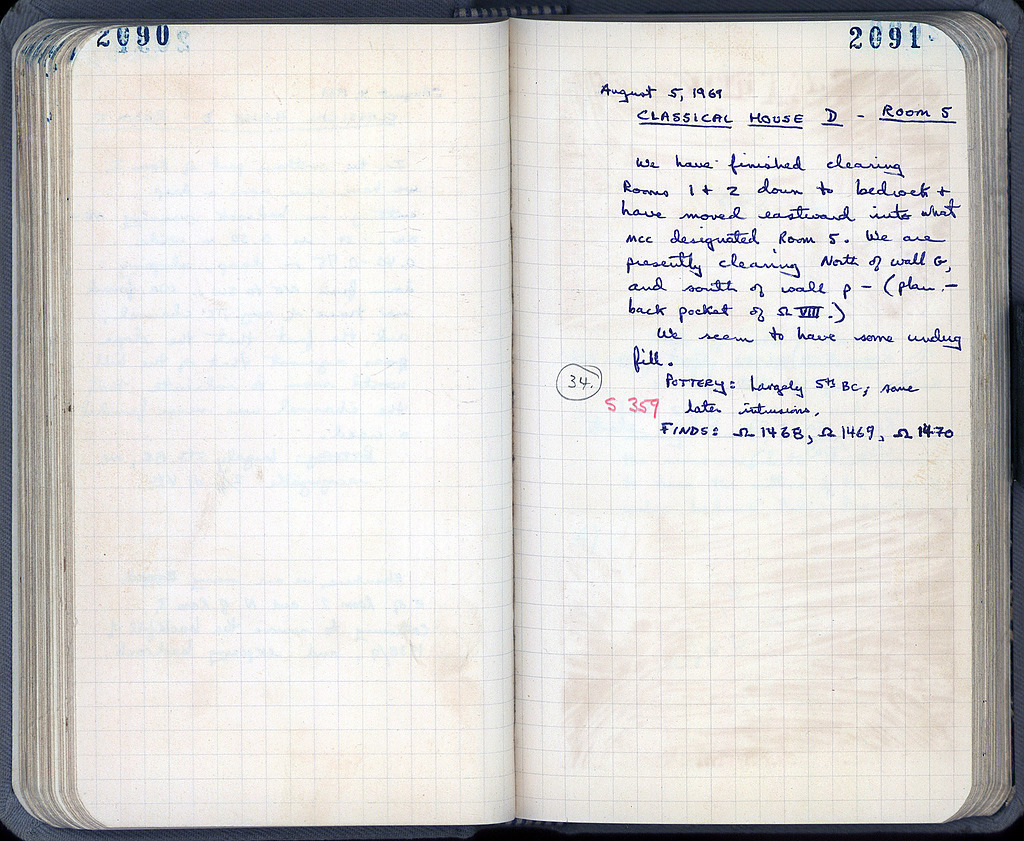 2090
2091
August 5, 1969
CLASSICAL HOUSE D - ROOM 5
We have finished clearing
Rooms 1 + 2 down to bedrock +
have moved eastward into what
MCC designated Room 5. We are
presently clearing North of wall G,
and south of wall p - (plan -
back pocket of Ω VIII.)
We seem to have some undug
fill.
34.
POTTERY: Largely 5th BC; some
S 359 later intrusions.
FINDS: Ω 1468, Ω 1469, Ω 1470